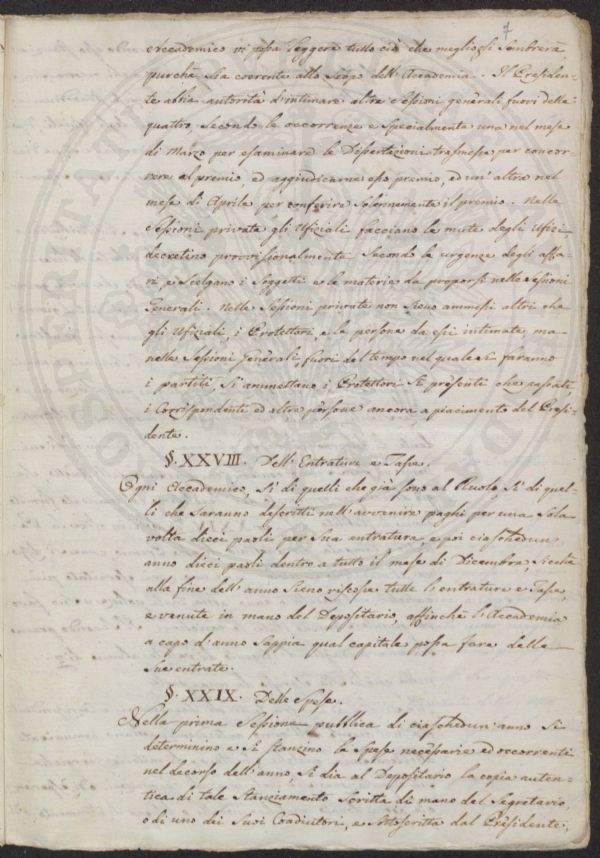 7
Accademico vi possa leggere tutto ciò che meglio gli sembrerà
purchè sia coerente allo scopo dell'Accademia. Il Presiden-
te abbia autorità d'intimare altre Sessioni generali fuori delle
quattro, secondo le occorrenze e specialmente una nel mese
di Marzo per esaminare le Dissertazioni trasmesse per concor-
rere al premio ed aggiudicarne esso premio, ed un'altra nel
mese di Aprile per conferire solennemente il premio. Nelle
Sessioni private gli Ufiziali facciano le mute degli Ufizi
decretino provvisionalmente secondo le urgenze degli affa-
ri e scelgano i Soggetti e le materie da proporsi nelle Sessioni
Generali. Nelle Sessioni private non sieno ammessi altri che
gli Ufiziali, i Protettori, e le persone da essi intimate, ma
nelle Sessioni Generali, fuori del tempo nel quale si faranno
i partiti, si ammettano i Protettori sì presenti che passati,
i Corrispondenti ed altre persone ancora a piacimento del Presi-
dente.
§. XXVIII. Dell'Entrature e Tasse.
Ogni Accademico, sì di quelli che già sono al Ruolo, sì di quel-
li che saranno descritti nell'avvenire paghi per una sola
volta dieci paoli per sua entratura e poi ciaschedun
anno dieci paoli dentro a tutto il mese di Dicembre, sicchè
alla fine dell'anno sieno riscosse tutte l'entrature e Tasse,
e venute in mano del Depositario, affinchè l'Accademia
a capo d'anno sappia qual capitale possa fare delle
sue entrate.
§. XXIX. Delle Spese.
Nella prima Sessione pubblica di ciaschedun'anno si
determinino e si stanzino le spese necessarie ed occorrenti
nel decorso dell'anno, si dia al Depositario la copia auten-
tica di tale stanziamento scritta di mano del Segretario,
o di uno dei suoi Coadiutori, e sottoscritta dal Presidente,